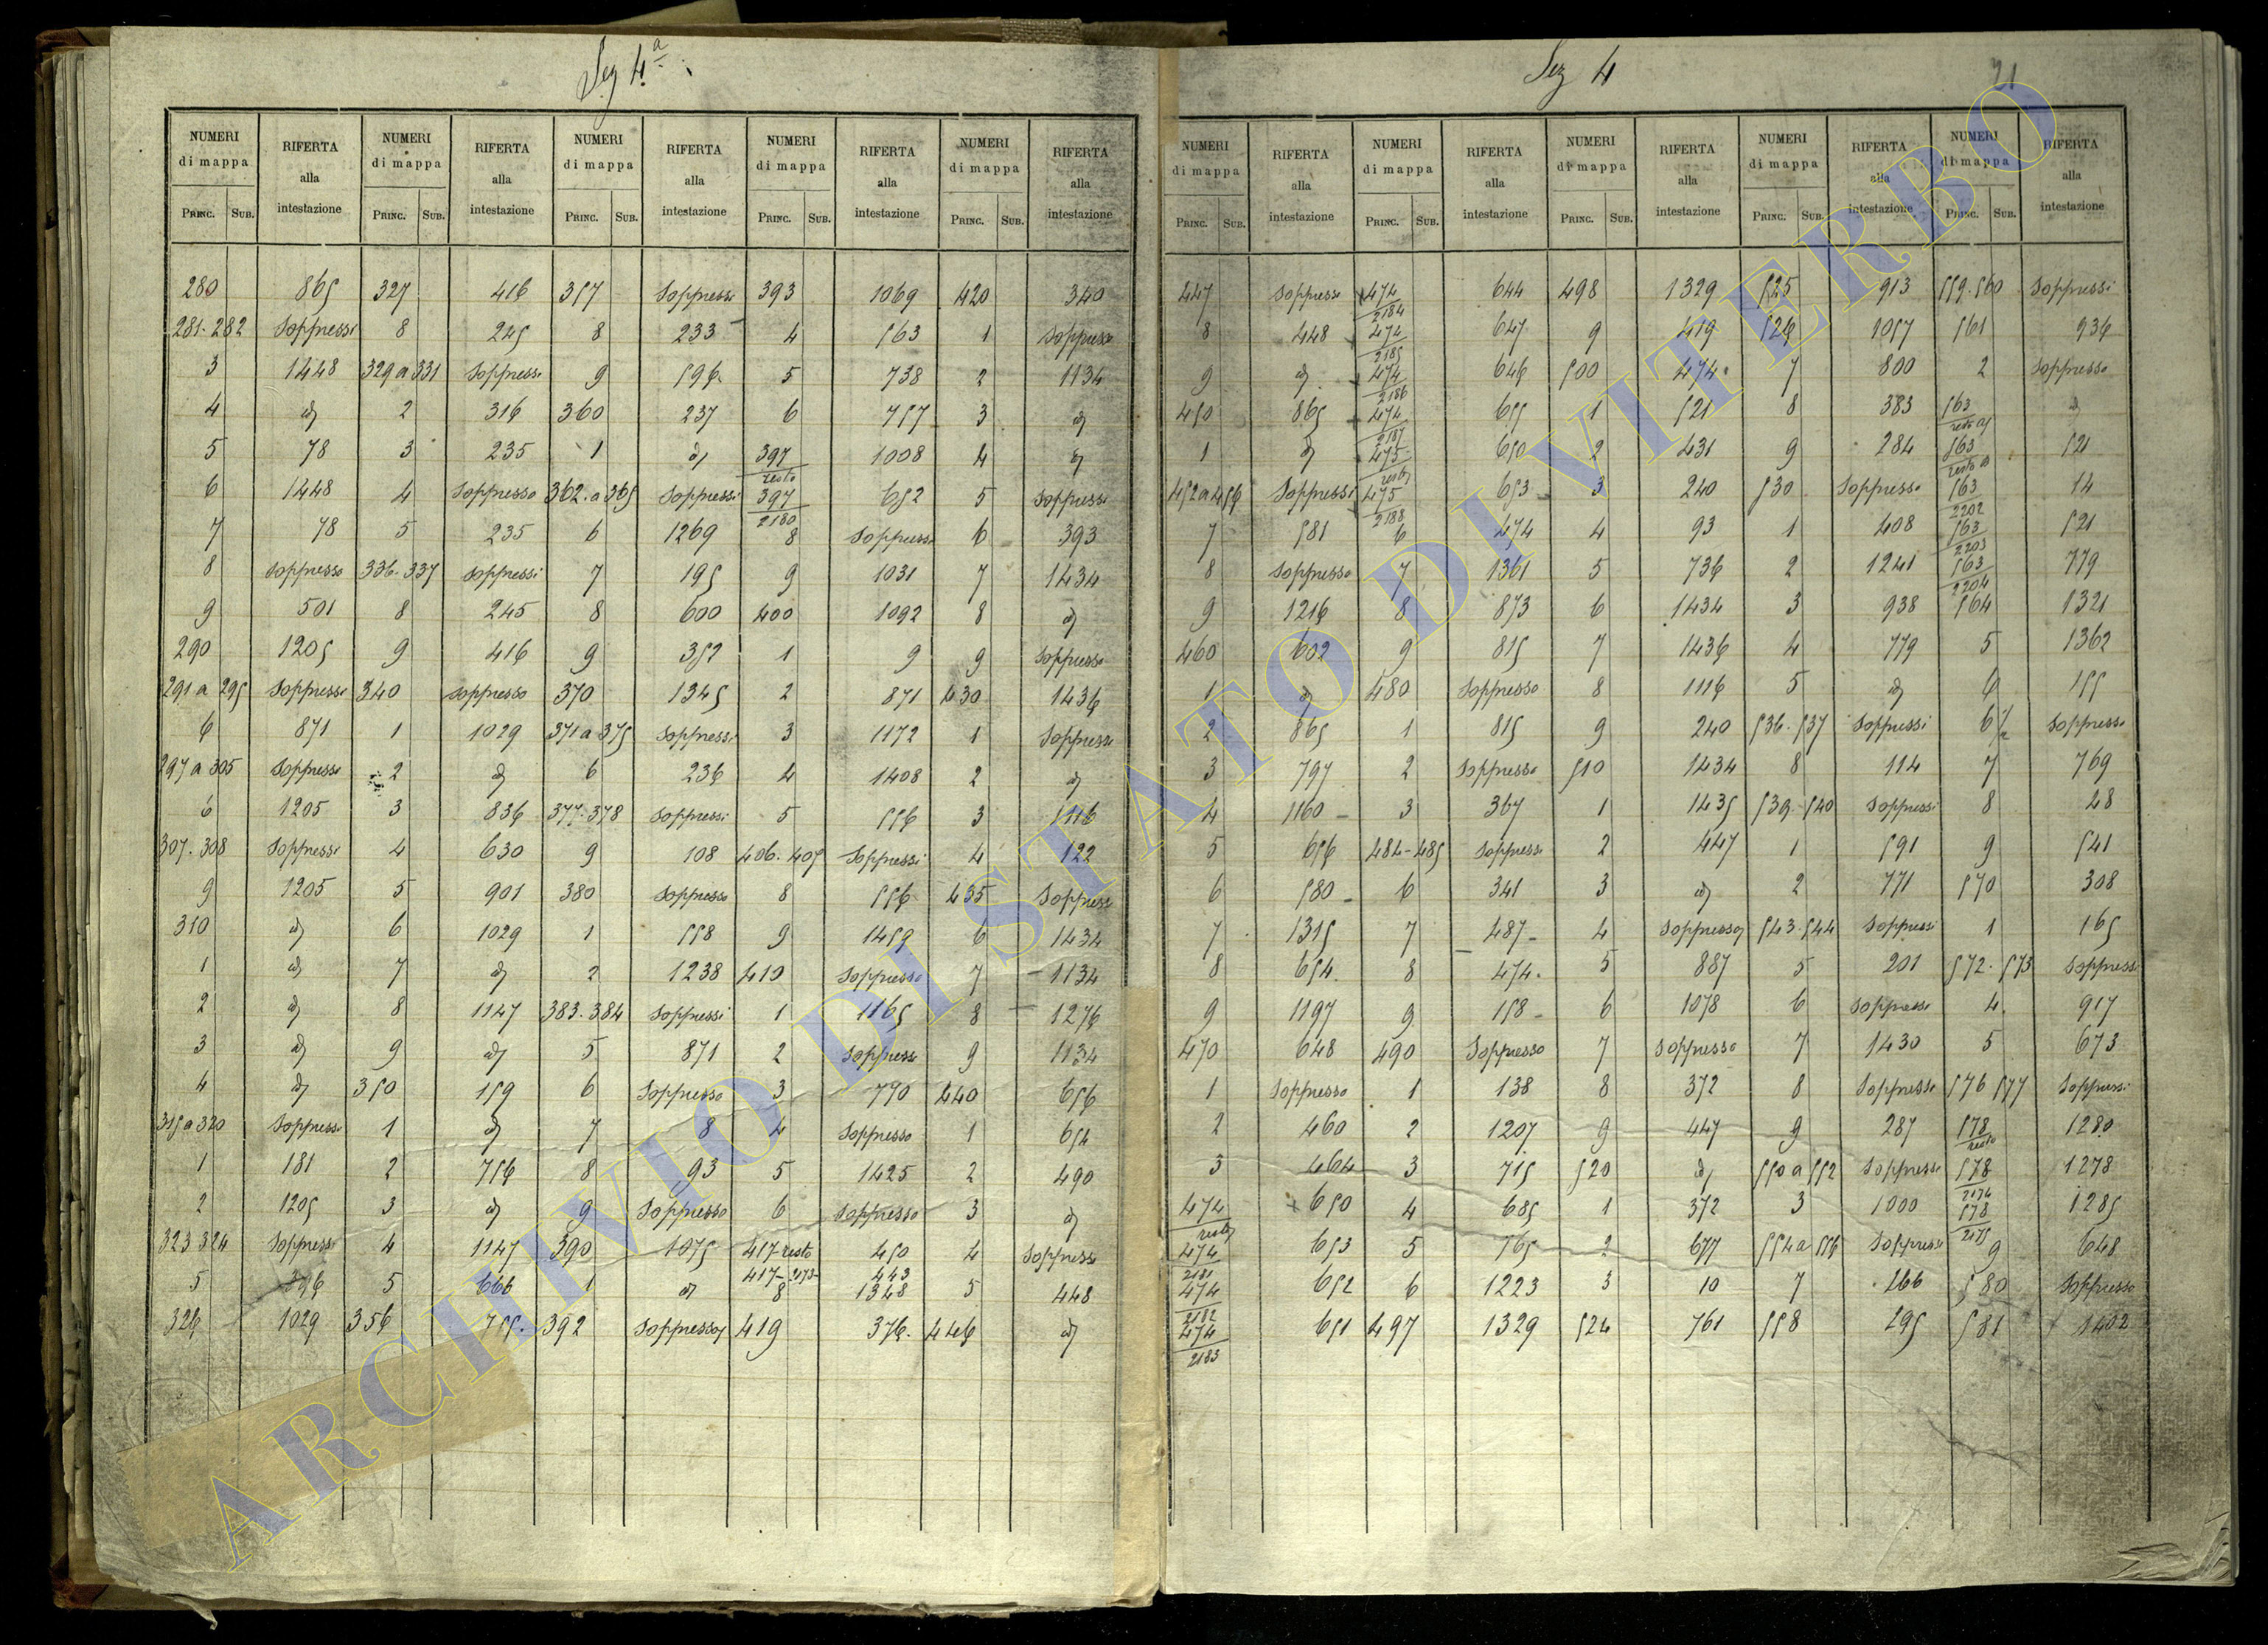 Sez 4ª
NUMERI di mappa RIFERTA alla intestazione NUMERI di mappa RIFERTA alla intestazione NUMERI di mappa RIFERTA alla intestazione NUMERI di mappa RIFERTA alla intestazione NUMERI di mappa RIFERTA alla intestazione
PRINC. SUB. PRINC. SUB. PRINC. SUB. PRINC. SUB. PRINC. SUB.
280 865 327 416 357 Soppressi 393 1069 420 340
281-282 Soppressi 8 245 8 233 4 563 1 Soppresso
3 1448 329 a 331 Soppressi 9 596 5 738 2 1134
4 d 2 316 360 237 6 757 3 d
5 78 3 235 1 d 397 resto 1008 4 d
6 1448 4 Soppresso 362 a 365 Soppressi 397 2180 652 5 Soppresso
7 78 5 235 6 1269 8 Soppresso 6 393
8 Soppresso 336-337 Soppressi 7 195 9 1031 7 1434
9 501 8 245 8 600 400 1092 8 d
290 1205 9 416 9 352 1 9 9 Soppresso
291 a 295 Soppressi 340 Soppresso 370 1345 2 871 430 1436
6 871 1 1029 371 a 375 Soppressi 3 1172 1 Soppresso
297 a 305 Soppressi 2 d 6 236 4 1408 2 d
6 1205 3 836 377-378 Soppressi 5 556 3 1116
307-308 Soppressi 4 630 9 108 406-407 Soppressi 4 122
9 1205 5 901 380 Soppresso 8 556 435 Soppresso
310 d 6 1029 1 558 9 1459 6 1434
1 d 7 d 2 1238 410 Soppresso 7 1134
2 d 8 1147 383-384 Soppressi 1 1165 8 1276
3 d 9 d 5 871 2 Soppresso 9 1134
4 d 350 159 6 Soppresso 3 770 440 656
315 a 320 Soppressi 1 d 7 8 4 Soppresso 1 654
1 181 2 756 8 93 5 1425 2 490
2 1205 3 d 9 Soppresso 6 Soppresso 3 d
323 324 Soppressi 4 1147 390 1075 417 resto 450 4 Soppresso
5 5 666 1 d 417 2173 443
8 1348 5 448
326 1029 356 755 392 Soppresso 419 376 446 d
Sez 4
21
NUMERI di mappa RIFERTA alla intestazione NUMERI di mappa RIFERTA alla intestazione NUMERI di mappa RIFERTA alla intestazione NUMERI di mappa RIFERTA alla intestazione NUMERI di mappa RIFERTA alla intestazione
PRINC. SUB. PRINC. SUB. PRINC. SUB. PRINC. SUB. PRINC. SUB.
447 Soppresso 474 2184 644 498 1329 525 913 559-560 Soppressi
8 448 474 2185 647 9 419 526 1057 561 936
9 d 474 2186 646 500 474 7 800 2 Soppresso
450 865 474 2187 655 1 521 8 383 563 resto d
1 d 475 resto 650 2 431 9 284 563 resto 521
452 a 456 Soppressi 475 2188 653 3 240 530 Soppresso 563 2202 14
7 581 6 474 4 93 1 408 563 2203 521
8 Soppresso 7 1361 5 736 2 1241 563 2204 779
9 1216 8 873 6 1434 3 938 564 1321
460 602 9 815 7 1436 4 779 5 1362
1 d 480 Soppresso 8 1116 5 d 6 155
2 865 1 815 9 240 536-537 Soppressi 6½ Soppresso
3 797 2 Soppresso 510 1434 8 114 7 769
4 1160 3 367 1 1435 539-540 Soppressi 8 48
5 656 484-485 Soppressi 2 447 1 591 9 541
6 580 6 341 3 d 2 771 570 308
7 1315 7 487 4 Soppresso 543-544 Soppressi 1 165
8 654 8 474 5 887 5 201 572-573 Soppressi
9 1197 9 158 6 1078 6 Soppresso 4 917
470 648 490 Soppresso 7 Soppresso 7 1430 5 673
1 Soppresso 1 138 8 372 8 Soppresso 576 577 Soppressi
2 460 2 1207 9 447 9 287 578 resto 1280
3 464 3 715 520 d 550 a 552 Soppressi 578 2174 1278
474 resto 650 4 685 1 372 3 1000 578 2175 1285
474 2181 653 5 765 2 677 554 a 556 Soppressi 9 648
474 2182 652 6 1223 3 10 7 266 580 Soppresso
474 2183 651 497 1329 524 761 558 295 581 1402
ARCHIVIO DI STATO DI VITERBO